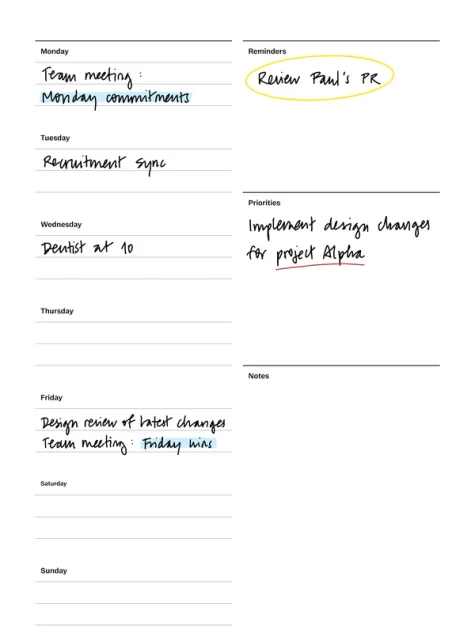 Monday
Team meeting :
Monday commitments
Tuesday
Recruitment sync
Wednesday
Dentist at 10
Thursday
Friday
Design review of latest changes
Team meeting : Friday wins
Saturday
Sunday
Reminders
Review Paul's PR
Priorities
Implement design changes
for project Alpha
Notes